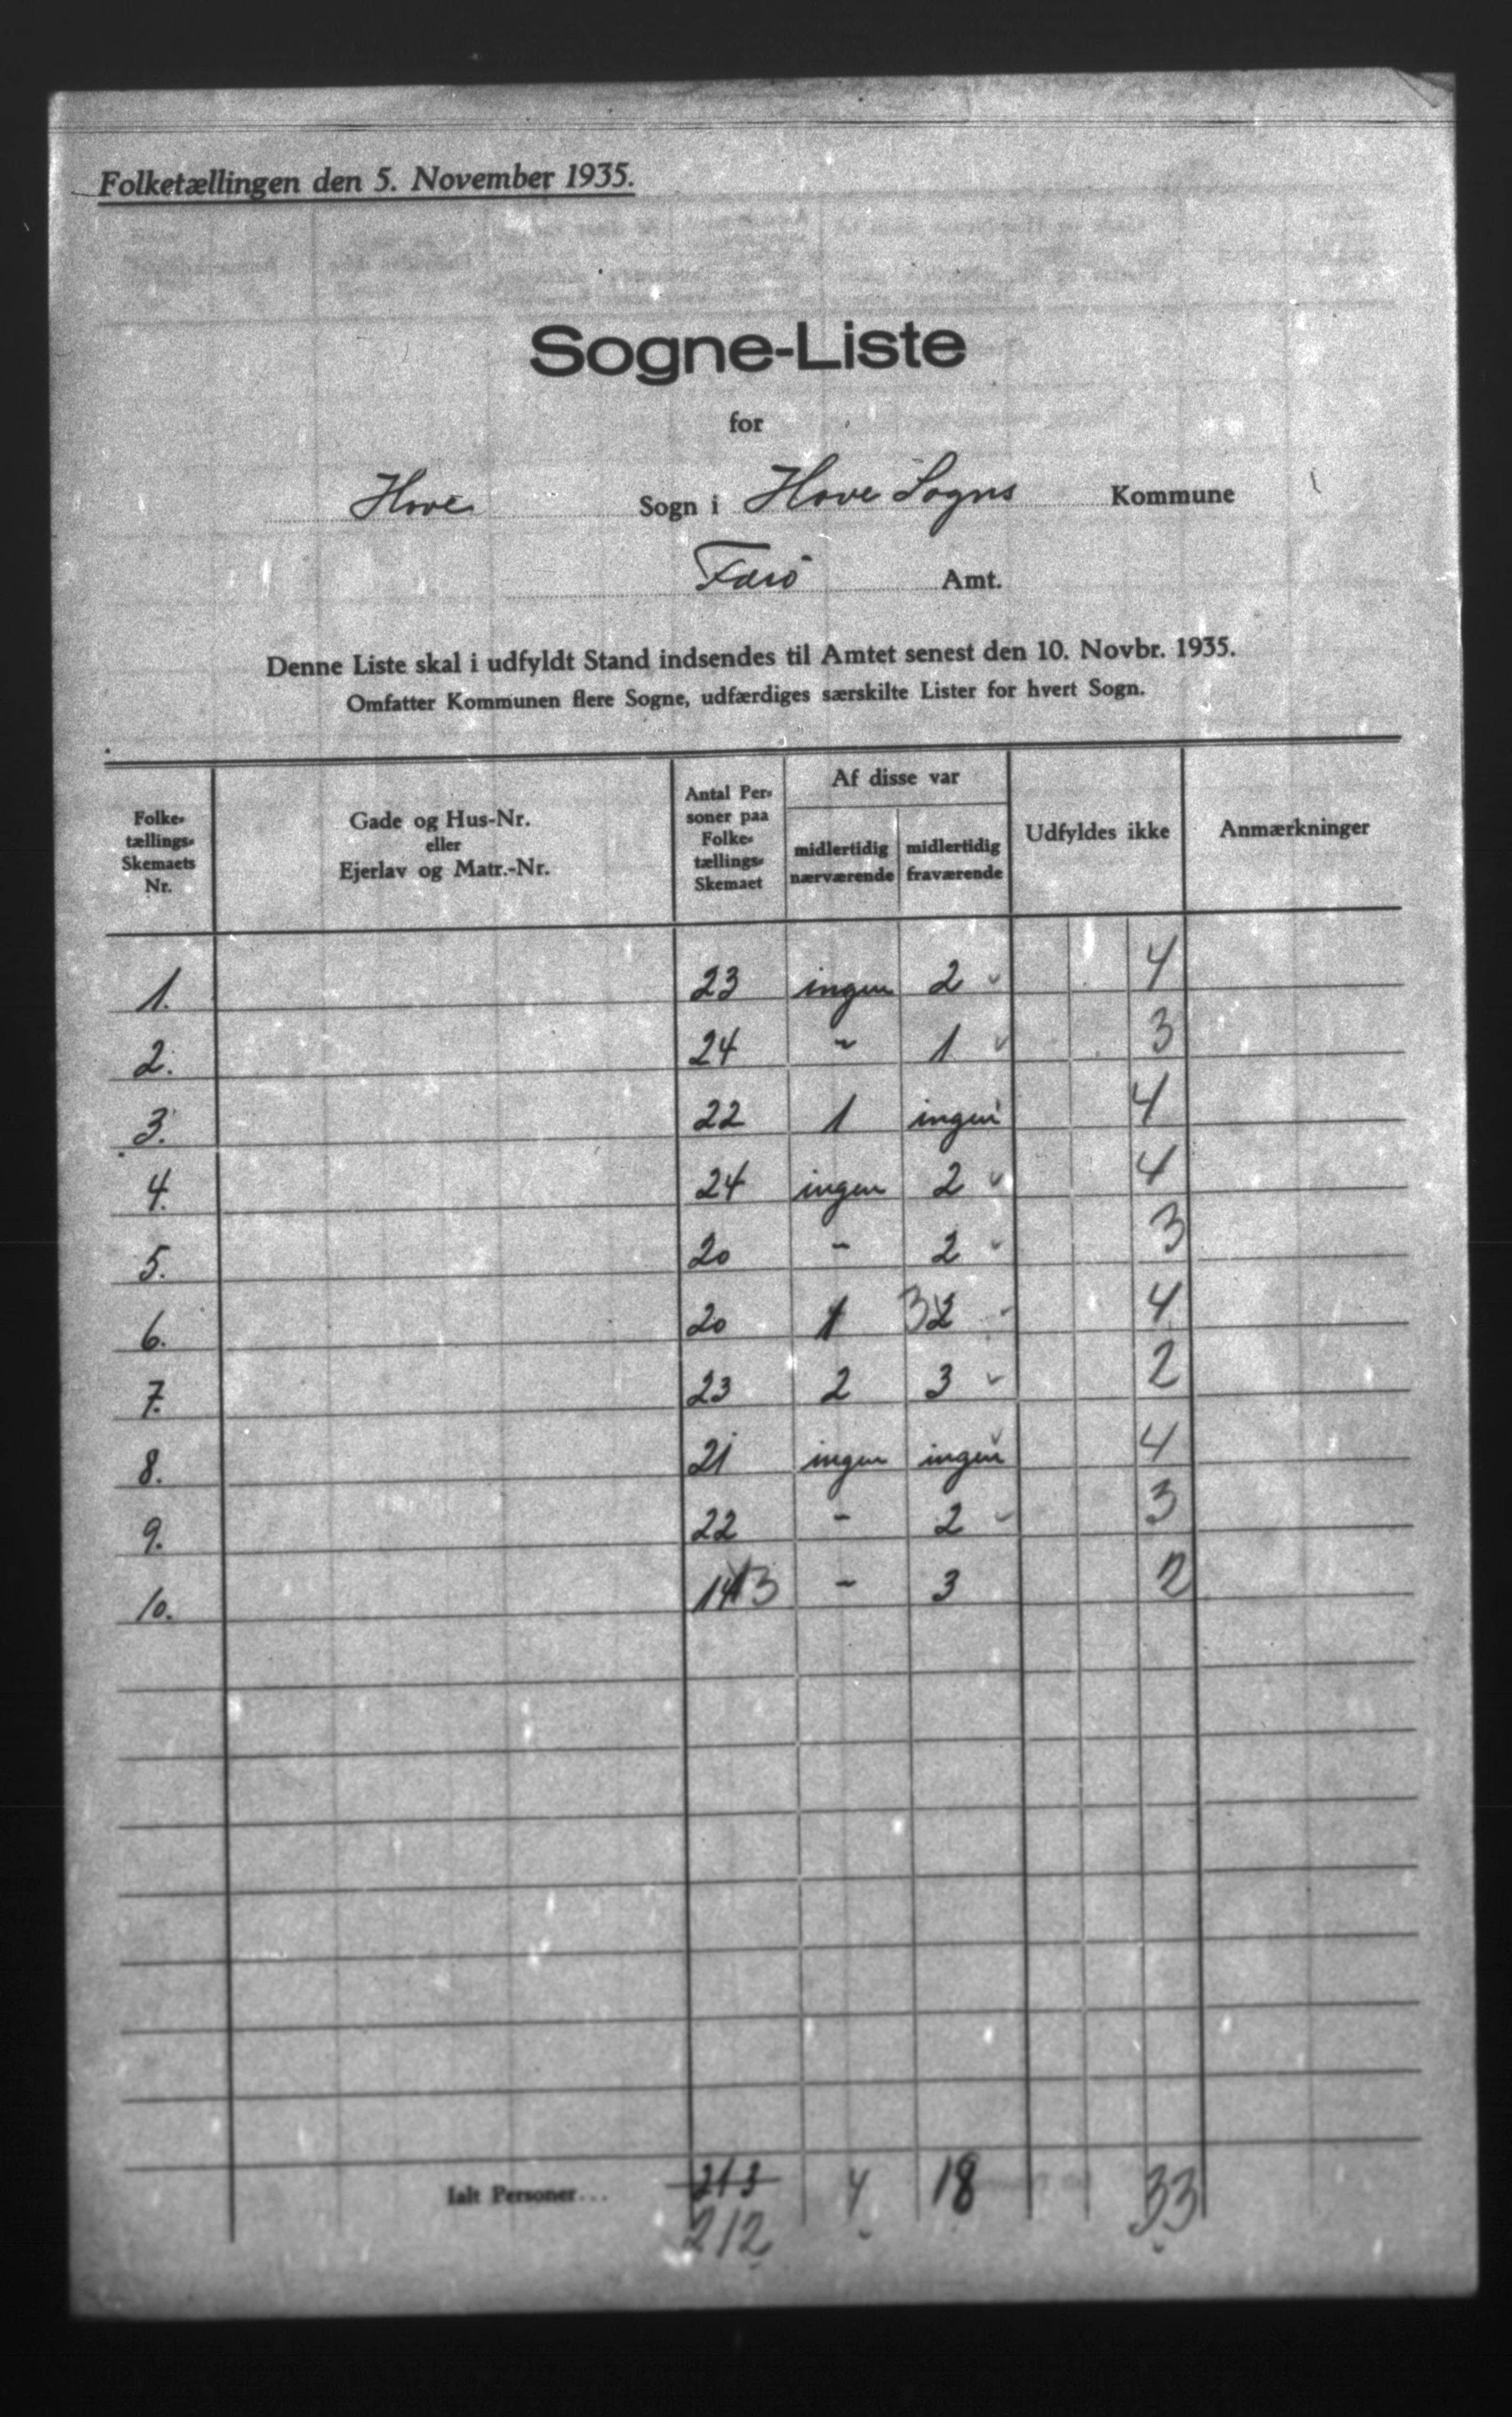 Folketællingen den 5. November 1935.
Sogne-Liste
for
Hove Sogn i Hove Sogns Kommune
Færö Amt.
Denne Liste skal i udfyldt Stand indsendes til Amtet senest den 10. Novbr. 1935.
Omfatter Kommunen flere Sogne, udfærdiges særskilte Lister for hvert Sogn.
Folke-
tællings-
Skemaets
Nr.
Gade og Hus-Nr.
eller
Ejerlav og Matr.-Nr.
Antal Per-
soner paa
Folke-
tællings-
Skemaet
Af disse var
midlertidig
nærværende
midlertidig
fraværende
Udfyldes ikke
Anmærkninger
1. 23 ingen 2 4
2. 24 ~ 1 3
3. 22 1 ingen 4
4. 24 ingen 2 4
5. 20 - 2 3
6. 20 1 3 2 4
7. 23 2 3 2
8. 21 ingen ingen 4
9. 22 - 2 3
10. 14 13 - 3 2
Ialt Personer... 213 4 18 33
212